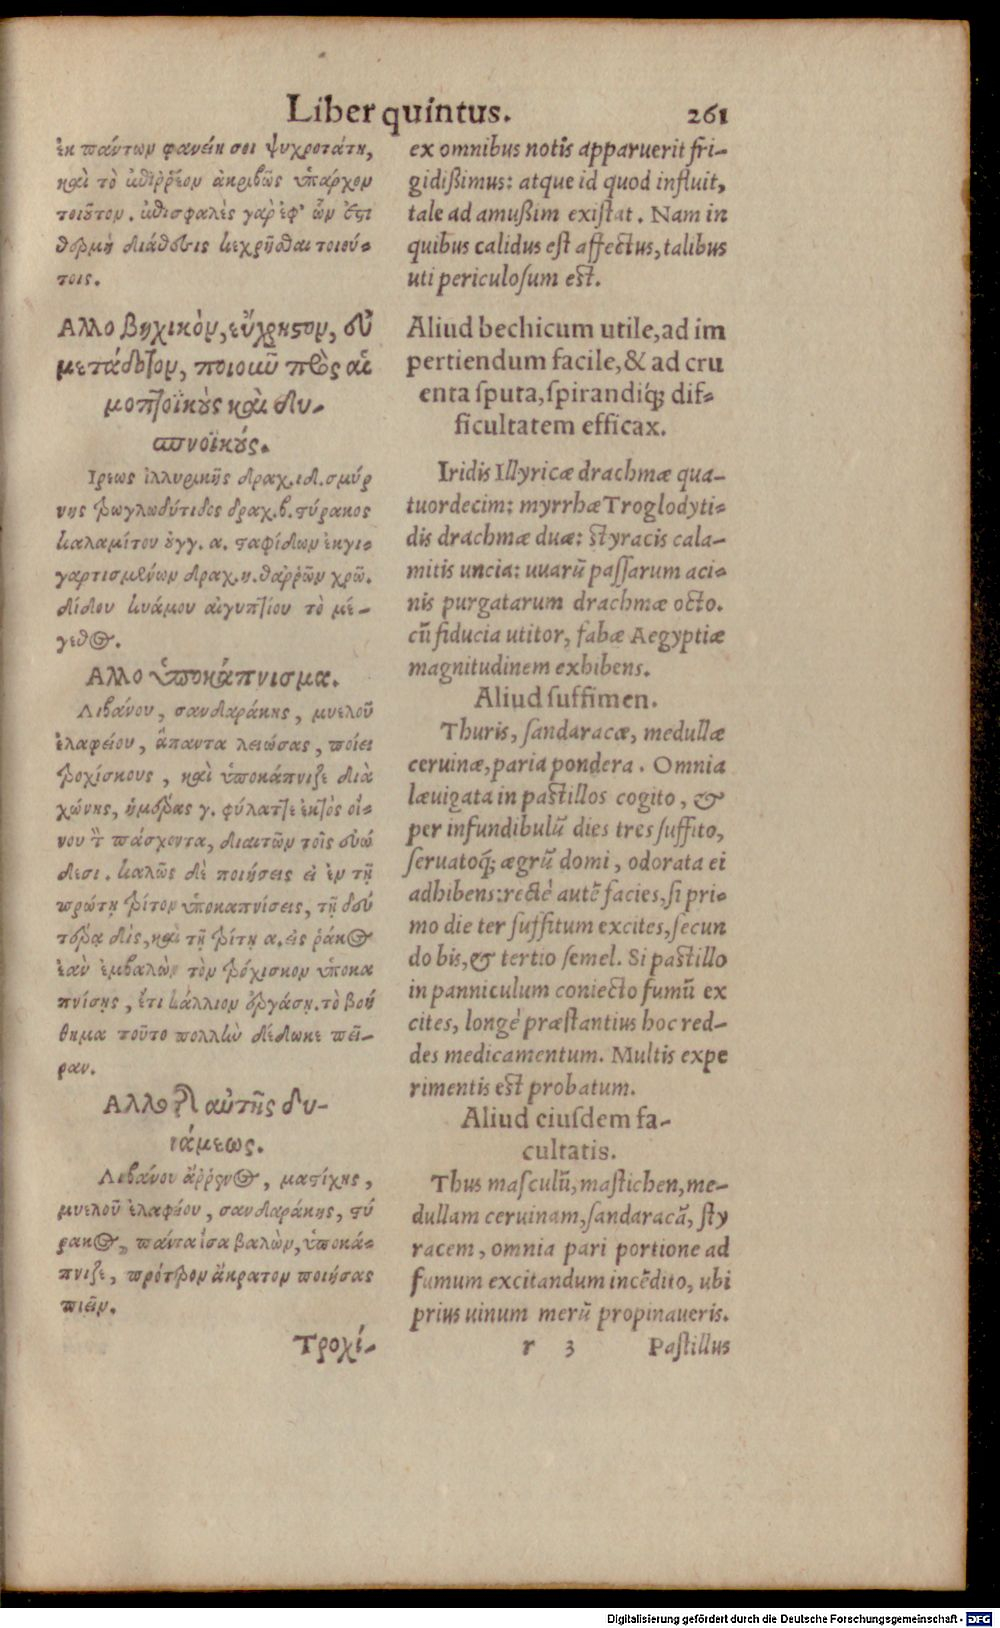 Liber quintus. 261
ἐκ πάντων φανείη σοι ψυχροτάτη,
καὶ τὸ ἐπιῤῥέον ἀκριβῶς ὑπάρχον
τοιοῦτον. ἐπισφαλὲς γὰρ ἐφ' ὧν ἐστι
θερμὴ διάθεσις κεχρῆσθαι τοιού-
τοις.
Αλλο βηχικὸν, εὔχρηστον, εὐ
μετάδοτον, ποιοιοῦν πρὸς αἱ
μοπτοϊκοὺς καὶ δυ-
σπνοϊκούς.
Ιρεως ἰλλυρικῆς δραχ. ιδ. σμύρ
νης τρωγλωδύτιδος δραχ. β. στύρακος
καλαμίτου ουγγ. α. σταφίδων ἐκγι-
γαρτισμένων δραχ. η. θαῤῥῶν χρῶ.
δίδου κυάμου αἰγυπτίου τὸ μέ-
γεθος.
Αλλο ὑποκάπνισμα.
Λιβάνου, σανδαράκης, μυελοῦ
ἐλαφείου, ἅπαντα λειώσας, ποίει
τροχίσκους, καὶ ὑποκάπνιζε διὰ
χώνης, ἡμέρας γ. φύλαττε ἐκτὸς οἴ-
νου τὸν πάσχοντα, διαιτῶν τοῖς εὐώ
δεσι. καλῶς δὲ ποιήσεις εἰ ἐν τῇ
πρώτῃ τρίτον ὑποκαπνίσεις, τῇ δευ
τέρᾳ δὶς, καὶ τῇ τρίτῃ α. εἰς ῥάκος
ἐὰν ἐμβαλὼν τὸν τρόχισκον ὑποκα
πνίσῃς, ἔτι κάλλιον ἐργάσῃ. τὸ βοή
θημα τοῦτο πολλὴν δέδωκε πεῖ-
ραν.
Αλλο τῆς αὐτῆς δυ-
νάμεως.
Λιβάνου ἄῤῥενος, μαστίχης,
μυελοῦ ἐλαφείου, σανδαράκης, στύ
ρακος, πάντα ἴσα βαλὼν, ὑποκά-
πνιζε, πρότερον ἄκρατον ποιήσας
πιεῖν.
Τροχί-
ex omnibus notis apparuerit fri-
gidißimus: atque id quod influit,
tale ad amußim existat. Nam in
quibus calidus est affectus, talibus
uti periculosum est.
Aliud bechicum utile, ad im
pertiendum facile, & ad cru
enta sputa, spirandiq́; dif-
ficultatem efficax.
Iridis Illyricæ drachmæ qua-
tuordecim: myrrhæ Troglodyti-
dis drachmæ duæ: styracis cala-
mitis uncia: uuarũ passarum aci-
nis purgatarum drachmæ octo.
cũ fiducia utitor, fabæ Aegyptiæ
magnitudinem exhibens.
Aliud suffimen.
Thuris, sandaracæ, medullæ
ceruinæ, paria pondera. Omnia
læuigata in pastillos cogito, &
per infundibulũ dies tres suffito,
seruatoq́; ægrũ domi, odorata ei
adhibens: rectè autẽ facies, si pri-
mo die ter suffitum excites, secun
do bis, & tertio semel. Si pastillo
in panniculum coniecto fumũ ex
cites, longè præstantius hoc red-
des medicamentum. Multis expe
rimentis est probatum.
Aliud eiusdem fa-
cultatis.
Thus masculũ, mastichen, me-
dullam ceruinam, sandaracã, sty
racem, omnia pari portione ad
fumum excitandum incẽdito, ubi
prius uinum merũ propinaueris.
r 3 Pastillus
Digitalisierung gefördert durch die Deutsche Forschungsgemeinschaft - DFG